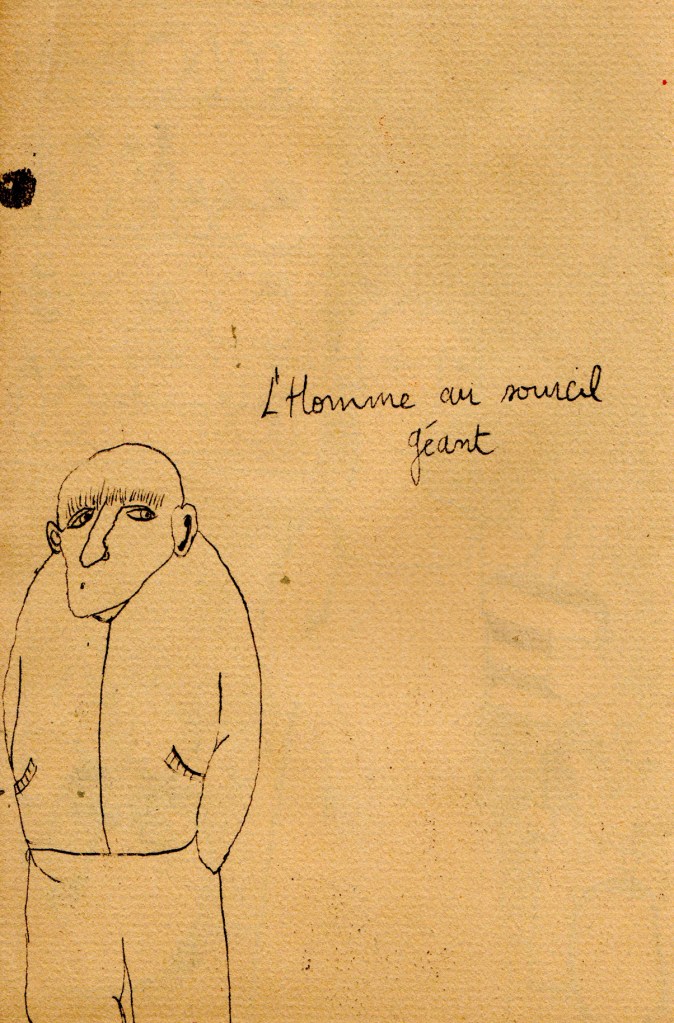 L'Homme au sourcil
géant